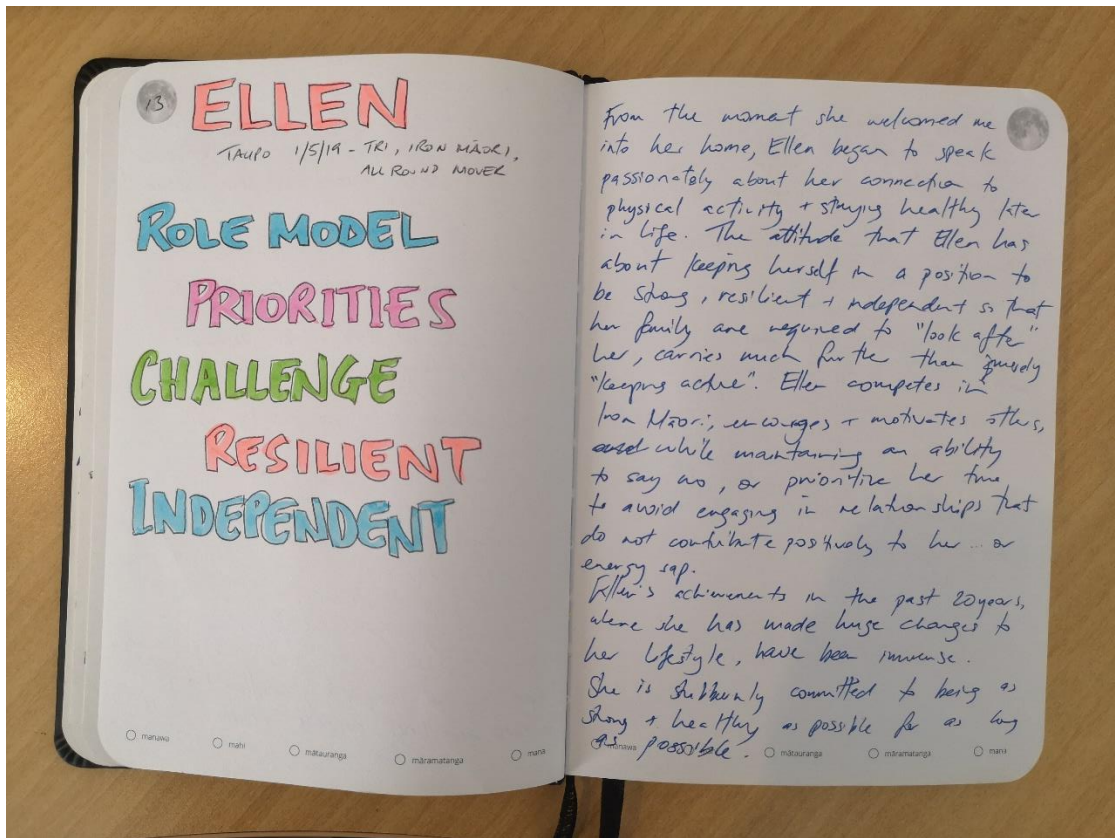 13
ELLEN
TAUPO 1/5/19 - TRI, IRON MĀORI,
ALL ROUND MOVER
ROLE MODEL
PRIORITIES
CHALLENGE
RESILIENT
INDEPENDENT
manawa mahi mātauranga māramatanga mana
From the moment she welcomed me
into her home, Ellen began to speak
passionately about her connection to
physical activity + staying healthy later
in life. The attitude that Ellen has
about keeping herself in a position to
be strong, resilient + independent so that
her family are required to "look after"
her, carries much further than merely
"keeping active". Ellen competes in
Iron Māori, encourages + motivates others,
while maintaining an ability
to say no, or prioritize her time
to avoid engaging in relationships that
do not contribute positively to her ... or
energy sap.
Ellen's achievements in the past 20 years,
where she has made huge changes to
her lifestyle, have been immense.
She is stubbornly committed to being as
strong + healthy as possible for as long
as possible.
manawa mātauranga māramatanga mana